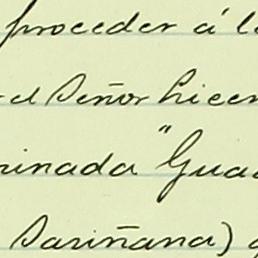 proceder á l
el Señor Licen
minada "Gua
Sariñana)